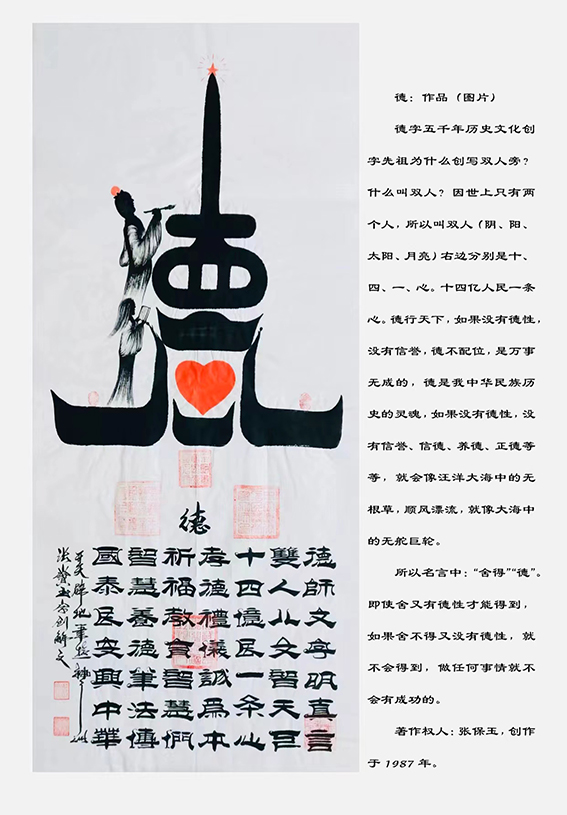 德
德師文字明真言
雙人文智天
十四億民一条心
孝德禮儀誠爲本
祈福教育智慧們
智慧養德筆法傳
國泰民安興中華
德：作品（图片）
德字五千年历史文化创
字先祖为什么创写双人旁？
什么叫双人？因世上只有两
个人，所以叫双人（阴、阳、
太阳、月亮）右边分别是十、
四、一、心。十四亿人民一条
心。德行天下，如果没有德性，
没有信誉，德不配位，是万事
无成的，德是我中华民族历
史的灵魂，如果没有德性，没
有信誉、信德、养德、正德等
等，就会像汪洋大海中的无
根草，顺风漂流，就像大海中
的无舵巨轮。
所以名言中：“舍得”“德”。
即使舍又有德性才能得到，
如果舍不得又没有德性，就
不会得到，做任何事情就不
会有成功的。
著作权人：张保玉，创作
于 1987 年。